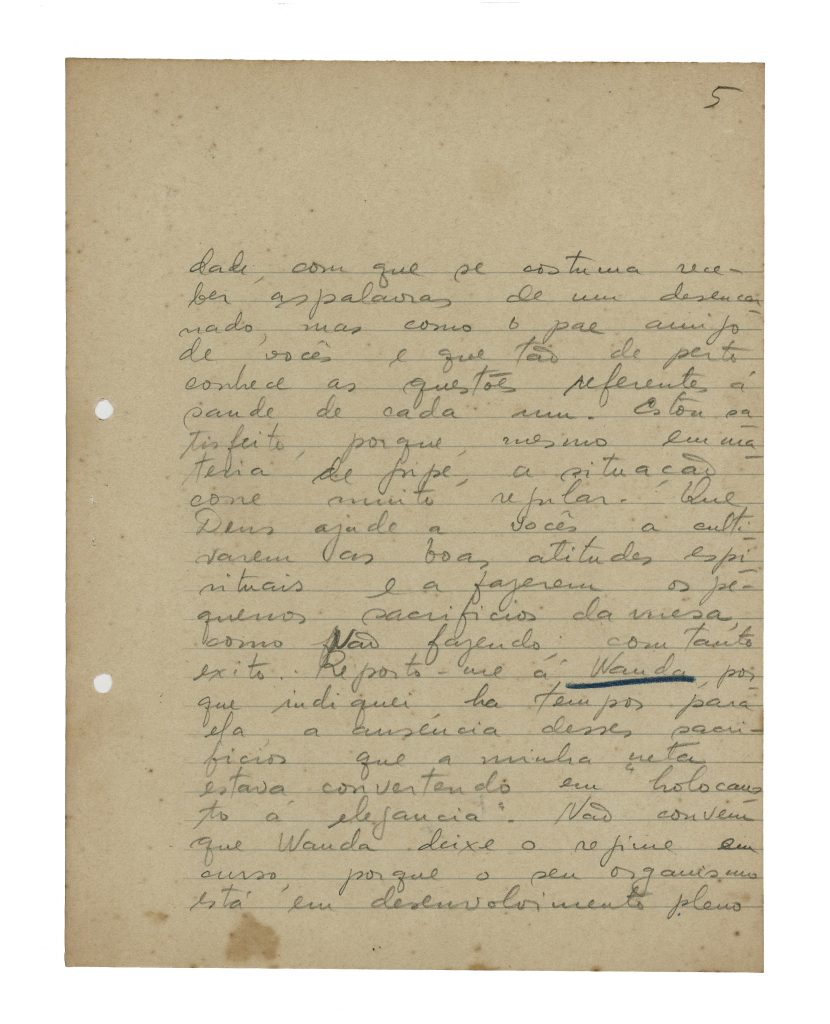 5
dade, com que se costuma rece-
ber as palavras de um desencar
nado, mas como o pae amigo
de vocês e que tão de perto
conhece as questões referentes á
saude de cada um. Estou sa
tisfeito, porque, mesmo em ma
teria de gripe, a situação
corre muito regular. Que
Deus ajude a vocês a culti
varem as boas atitudes espi
rituais e a fazerem os pe-
quenos sacrificios da mesa,
como vão fazendo, com tanto
exito. Reporto-me á Wanda, por
que indiquei ha tempos para
ela a ausência desses sacri-
ficios que a minha neta
estava convertendo em "holocaus
to á elegancia". Não convem
que Wanda deixe o regime em
curso, porque o seu organismo
está em desenvolvimento pleno